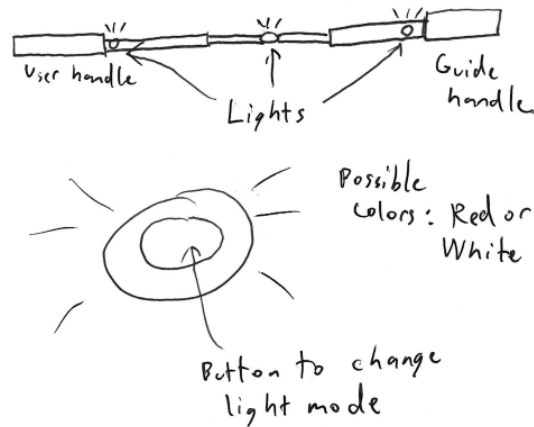 User handle
Guide
handle
Lights
Possible
colors: Red or
White
Button to change
light mode